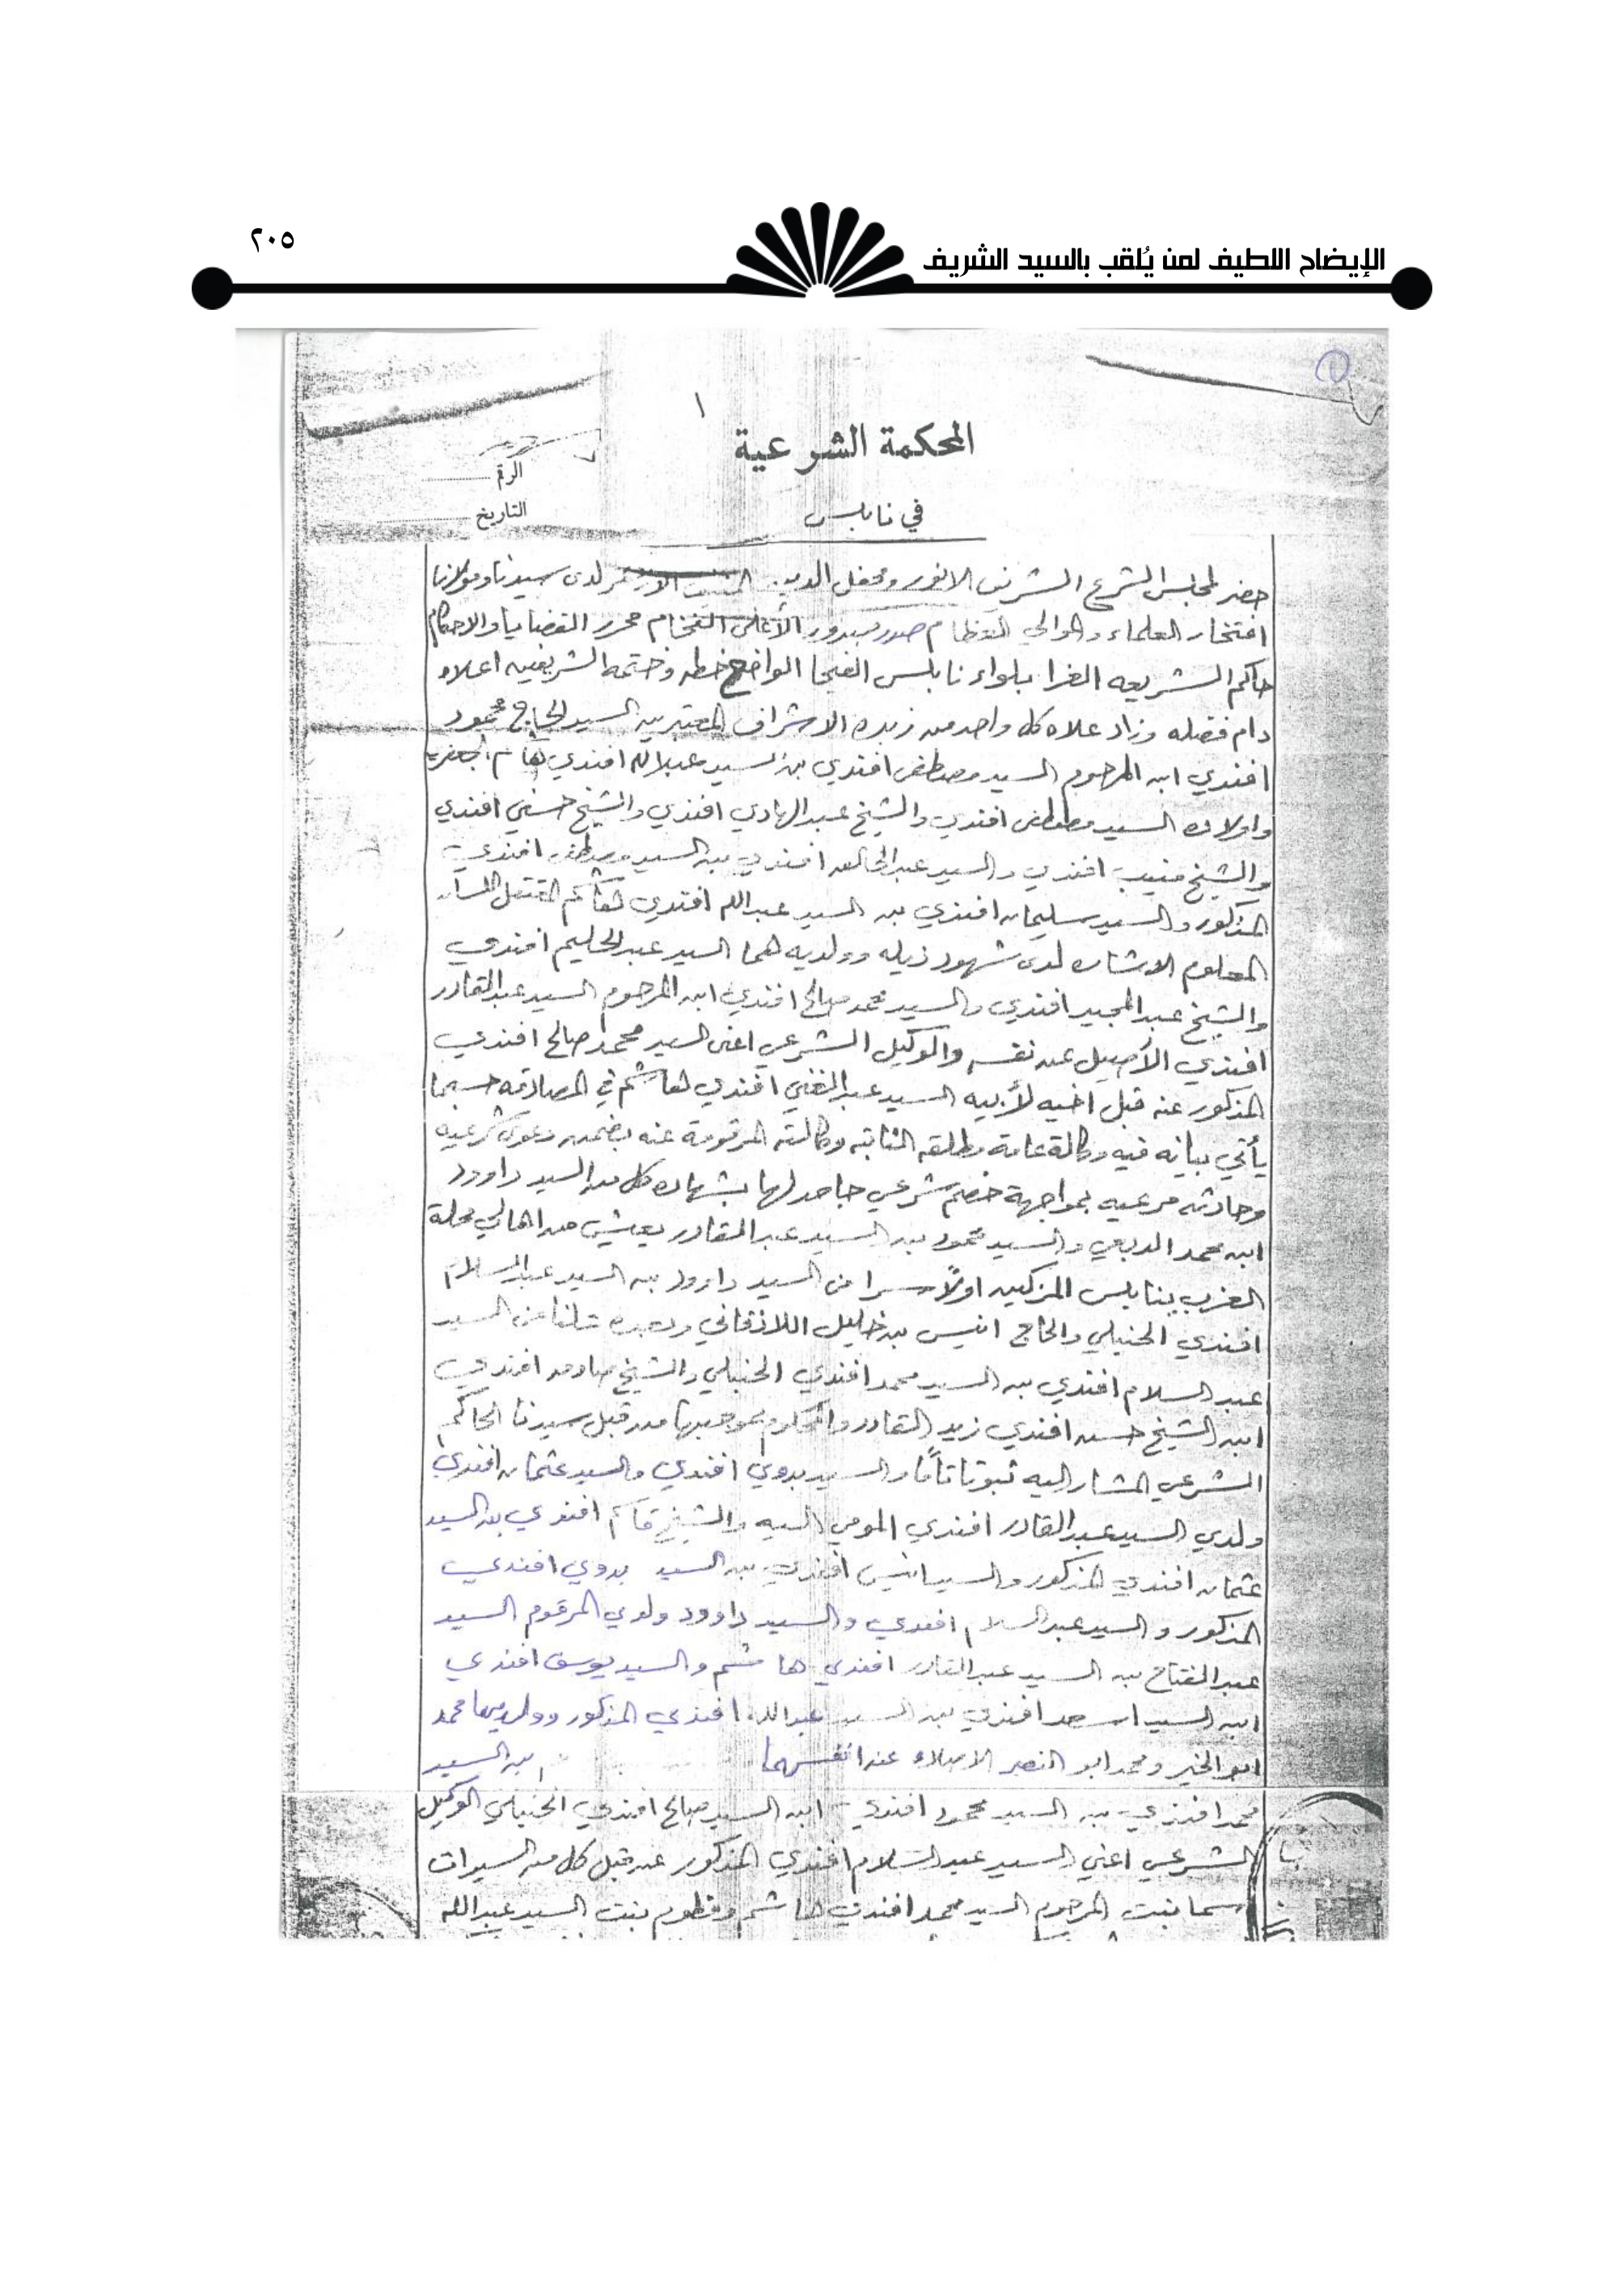 ٢٠٥
الإيضاح اللطيف لمن يُلقب بالسيد الشريف
١
المحكمة الشرعية
الرقم
في نابلس
التاريخ
حضر لمجلس الشرع الشريف الانور ومحفل الدين لدى سيدنا ومولانا
افتخار العلماء والموالي العظام صدر بدور الأعالي الفخام محرر القضايا والاحكام
حاكم الشريعه الغرا بلواء نابلس الفيحا الواضع خطه وختمه الشريفين اعلاه
دام فضله وزاد علاه كل واحد من زبدة الاشراف المعتبرين السيد الحاج محمود
افندي ابن المرحوم السيد مصطفى افندي بن السيد عبدالله افندي هاشم الجعفري
واولاده السيد مصطفى افندي والشيخ عبد الهادي افندي والشيخ حسني افندي
والشيخ منيب افندي والسيد عبد الخالق افندي بن السيد مصطفى افندي
المذكور والسيد سليمان افندي بن السيد عبدالله افندي هاشم المعتقل اللسان
المعلوم الاشاره لدى شهود ذيله وولديه هما السيد عبد الحليم افندي
والشيخ عبد المجيد افندي والسيد محمد صالح افندي ابن المرحوم السيد عبد القادر
افندي الأصيل عن نفسه والوكيل الشرعي اعني السيد محمد صالح افندي
المذكور عن قبل اخيه لأبيه السيد عبد الغني افندي هاشم في المصادقه حسبما
يأتي بيانه فيه وكالة عامة مطلقه الثابته وكالته المرقومة عنه بضمن دعوى شرعيه
وحادثه مرعيه بمواجهة خصم شرعي جاحد لها بشهادة كل من السيد داوود
ابن محمد الدبعي والسيد محمود بن السيد عبد القادر يعيش من اهالي محلة
الغرب بنابلس المزكيين اولاً سرا من السيد داوود بن السيد عبد السلام
افندي الحنبلي والحاج انيس بن خليل اللاذقاني وبعده علنا من السيد
عبد السلام افندي بن السيد محمد افندي الحنبلي والشيخ صادق افندي
ابن الشيخ حسن افندي زيد القادر والمحكوم بموجبها من قبل سيدنا الحاكم
الشرعي المشار اليه ثبوتا تاماً والسيد بدوي افندي والسيد عثمان افندي
ولدي السيد عبد القادر افندي المومى اليه والشيخ قاسم افندي بن السيد
عثمان افندي المذكور والسيد انيس افندي بن السيد بدوي افندي
المذكور والسيد عبد السلام افندي والسيد داوود ولدي المرقوم السيد
عبد الفتاح بن السيد عبد القادر افندي هاشم والسيد يوسف افندي
ابن السيد اسعد افندي بن السيد عبدالله افندي المذكور وولديهما محمد
ابو الخير ومحمد ابو النصر الاصلاء عن انفسهما بن السيد
محمد افندي بن السيد محمود افندي ابن السيد صالح افندي الحنبلي الوكيل
الشرعي اعني السيد عبد السلام افندي المذكور عن قبل كل من السيدات
اسما بنت المرحوم السيد محمد افندي هاشم وفطوم بنت السيد عبدالله